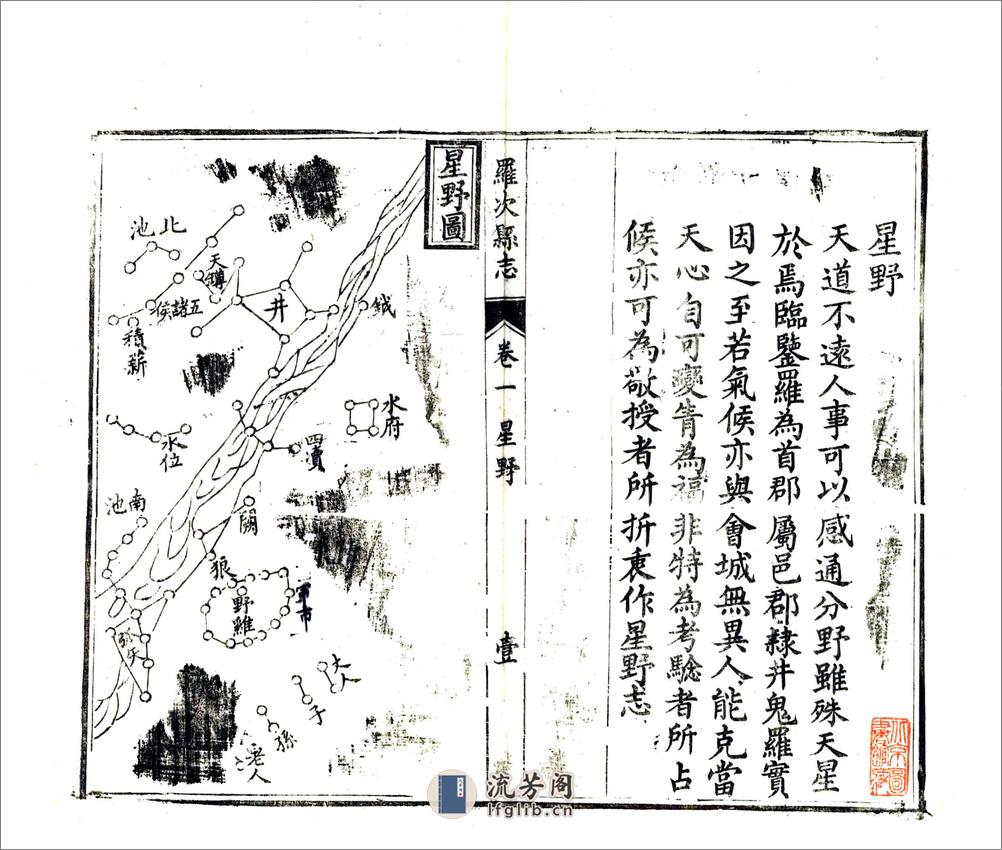 星野
天道不遠人事可以感通分野雖殊天星
於焉臨鑒羅為首郡屬邑郡隸井鬼羅實
因之至若氣候亦與會城無異人能克當
天心自可變眚為福非特為考騐者所占
候亦可為敬授者所折衷作星野志
羅次縣志
卷一 星野
壹
星野圖
鉞
井
天罇
北池
五諸侯
積薪
水府
四瀆
水位
南池
闕
狼
野雞
軍市
弧矢
丈人
子
孫
老人
流芳阁
lfglib.cn